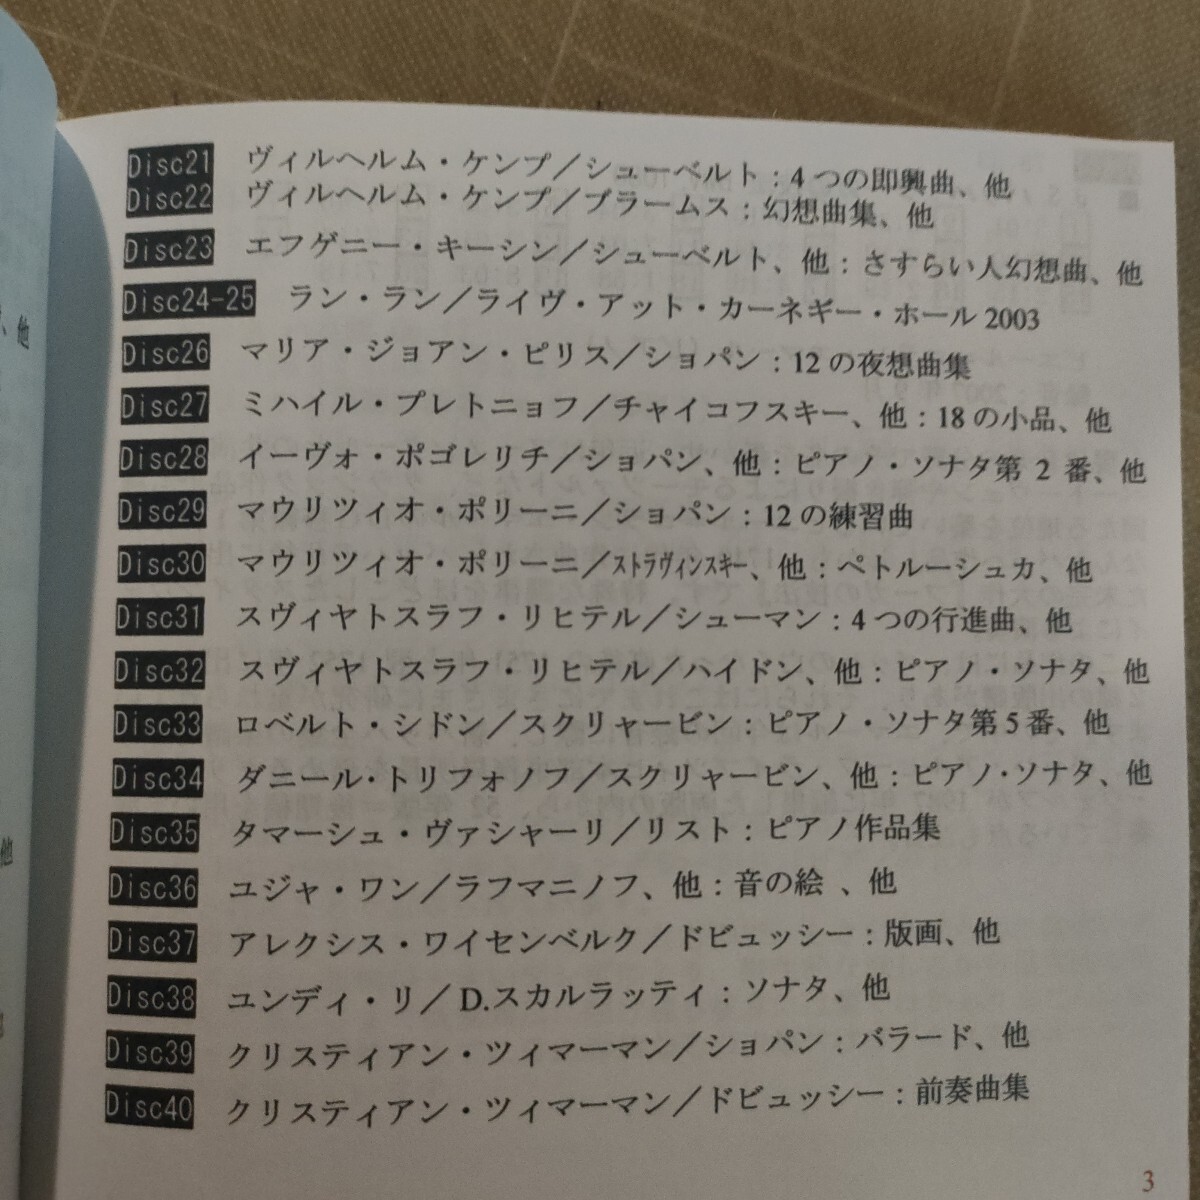 Disc21 ヴィルヘルム・ケンプ／シューベルト：4つの即興曲、他
Disc22 ヴィルヘルム・ケンプ／ブラームス：幻想曲集、他
Disc23 エフゲニー・キーシン／シューベルト、他：さすらい人幻想曲、他
Disc24-25 ラン・ラン／ライヴ・アット・カーネギー・ホール 2003
Disc26 マリア・ジョアン・ピリス／ショパン：12の夜想曲集
Disc27 ミハイル・プレトニョフ／チャイコフスキー、他：18の小品、他
Disc28 イーヴォ・ポゴレリチ／ショパン、他：ピアノ・ソナタ第 2 番、他
Disc29 マウリツィオ・ポリーニ／ショパン：12の練習曲
Disc30 マウリツィオ・ポリーニ／ｽﾄﾗｳﾞｨﾝｽｷｰ、他：ペトルーシュカ、他
Disc31 スヴィヤトスラフ・リヒテル／シューマン：4つの行進曲、他
Disc32 スヴィヤトスラフ・リヒテル／ハイドン、他：ピアノ・ソナタ、他
Disc33 ロベルト・シドン／スクリャービン：ピアノ・ソナタ第5番、他
Disc34 ダニール・トリフォノフ／スクリャービン、他：ピアノ・ソナタ、他
Disc35 タマーシュ・ヴァシャーリ／リスト：ピアノ作品集
Disc36 ユジャ・ワン／ラフマニノフ、他：音の絵 、他
Disc37 アレクシス・ワイセンベルク／ドビュッシー：版画、他
Disc38 ユンディ・リ／D.スカルラッティ：ソナタ、他
Disc39 クリスティアン・ツィマーマン／ショパン：バラード、他
Disc40 クリスティアン・ツィマーマン／ドビュッシー：前奏曲集
3
、他
他